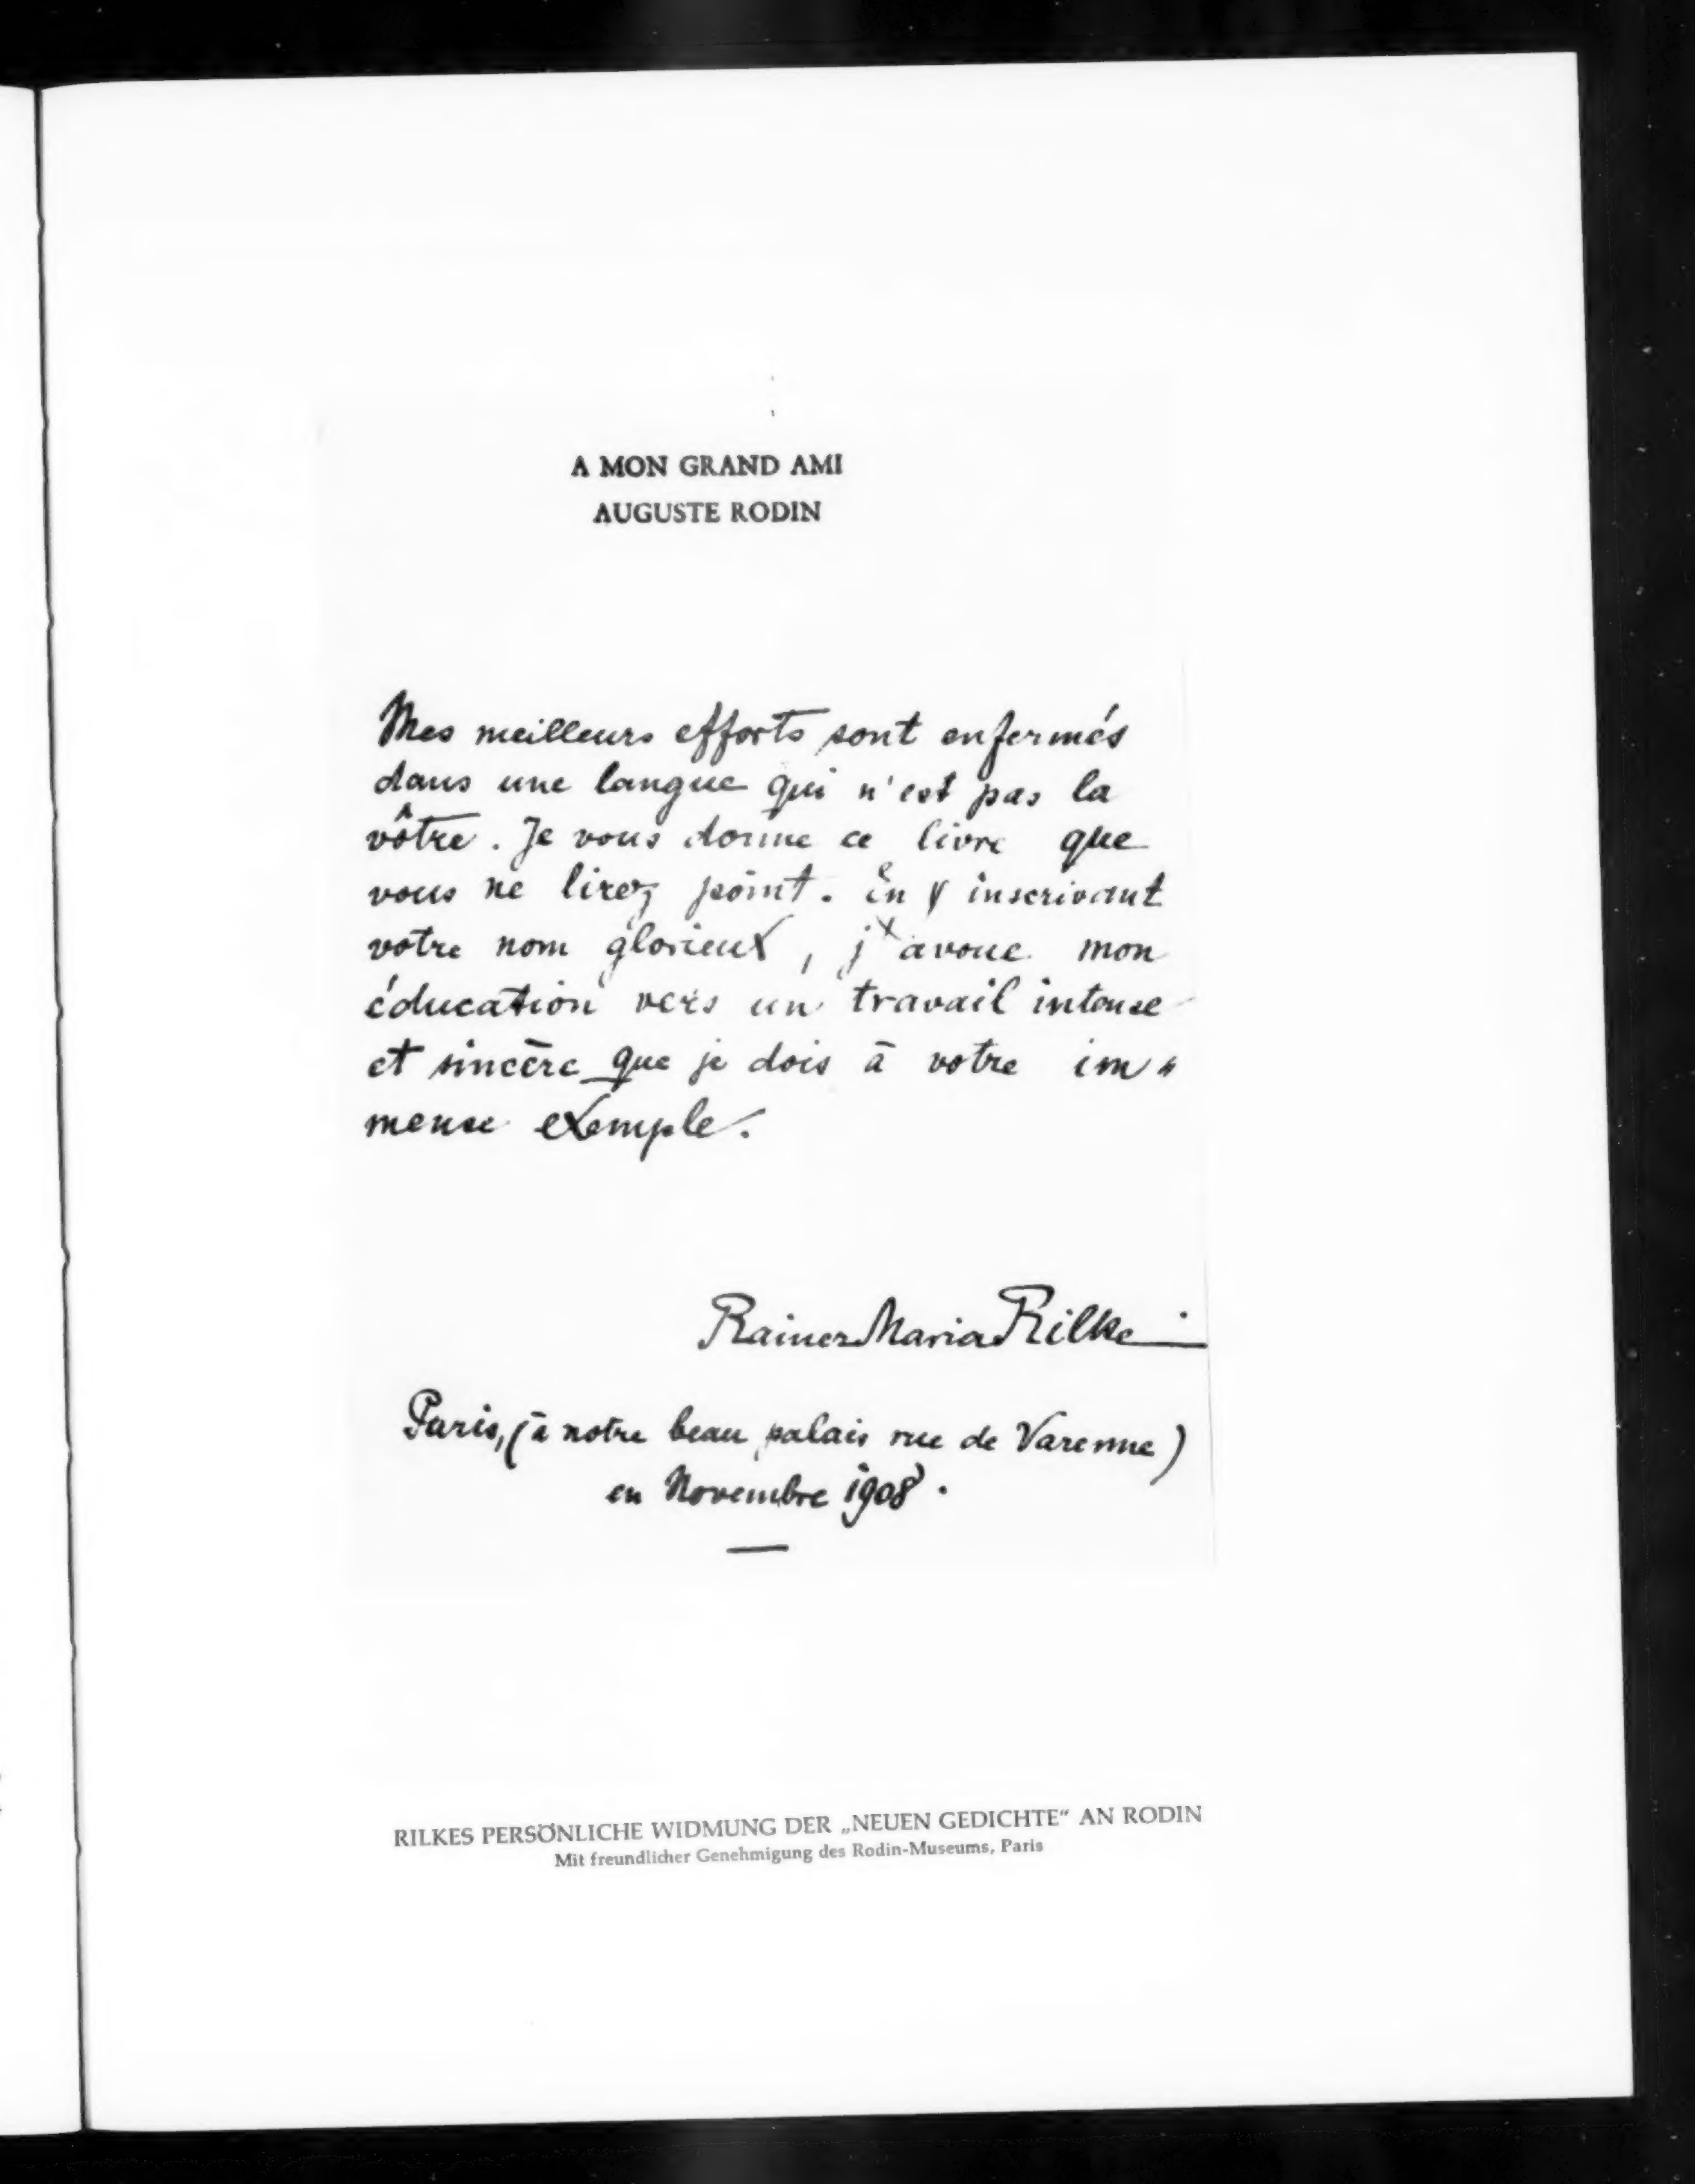 A MON GRAND AMI
AUGUSTE RODIN
Mes meilleurs efforts sont enfermés
dans une langue qui n'est pas la
vôtre. Je vous donne ce livre que
vous ne lirez point. En y inscrivant
votre nom glorieux, j'avoue mon
éducation vers un travail intense
et sincère que je dois à votre im=
mense exemple.
Rainer Maria Rilke
Paris, (à notre beau palais rue de Varenne)
en Novembre 1908.
RILKES PERSÖNLICHE WIDMUNG DER „NEUEN GEDICHTE“ AN RODIN
Mit freundlicher Genehmigung des Rodin-Museums, Paris